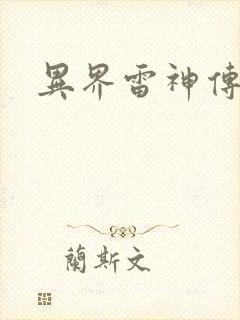 異界雷神傳
蘭斯文